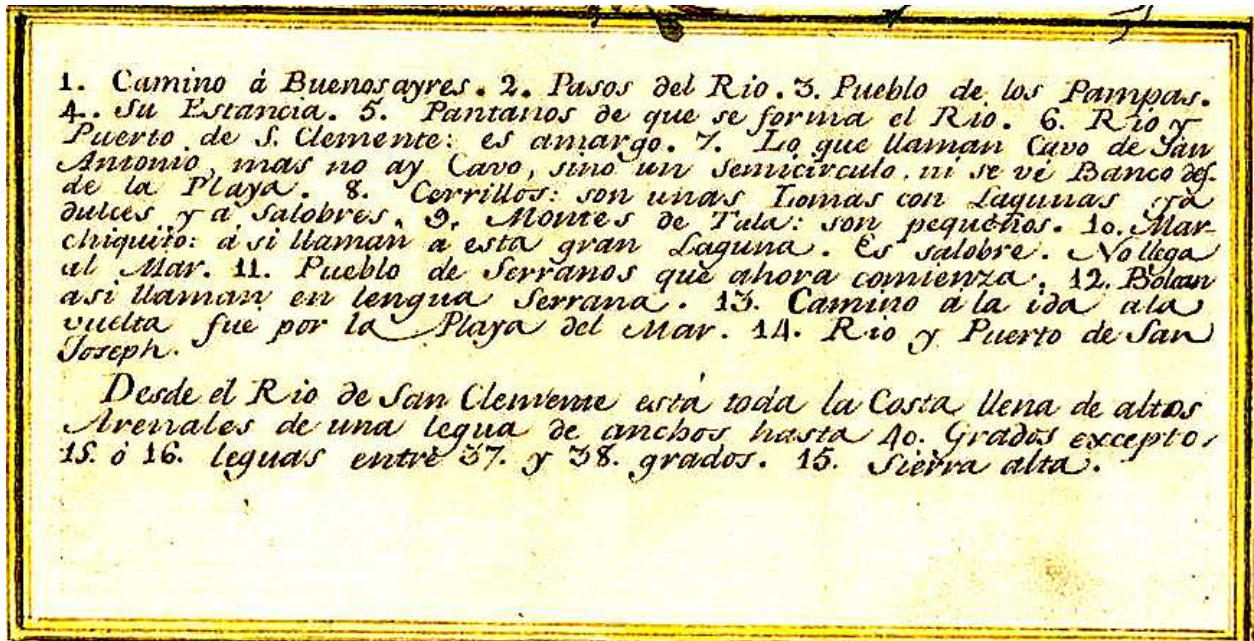 1. Camino á Buenosayres. 2. Pasos del Rio. 3. Pueblo de los Pampas.
4. Su Estancia. 5. Pantanos de que se forma el Rio. 6. Rio y
Puerto de S. Clemente: es amargo. 7. Lo que llaman Cavo de San
Antonio, mas no ay Cavo, sino un semicirculo, ni se vé Banco des-
de la Playa. 8. Cerrillos: son unas Lomas con Lagunas ya
dulces y a salobres. 9. Montes de Tala: son pequeños. 10. Mar-
chiquito: asi llaman a esta gran Laguna. Es salobre. No llega
al Mar. 11. Pueblo de Serranos que ahora comienza. 12. Bolcan
asi llaman en lengua Serrana. 13. Camino a la ida ala
vuelta fue por la Playa del Mar. 14. Rio y Puerto de San
Joseph.
Desde el Rio de San Clemente está toda la Costa llena de altos
Arenales de una legua de anchos hasta 40. Grados excepto
15. ó 16. leguas entre 37. y 38. grados. 15. Sierra alta.